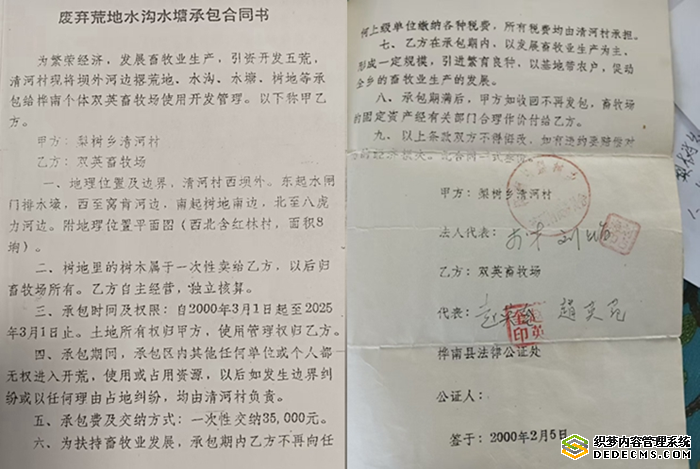 废弃荒地水沟水塘承包合同书
为繁荣经济，发展畜牧业生产，引资开发五荒，
清河村现将坝外河边撂荒地、水沟、水塘、树地等承
包给桦南个体双英畜牧场使用开发管理。以下称甲乙
方。
甲方：梨树乡清河村
乙方：双英畜牧场
一、地理位置及边界，清河村西坝外。东起水闸
门排水壕，西至窝肯河边，南起树地南边，北至八虎
力河边。附地理位置平面图（西北含红林村，面积8
垧）。
二、树地里的树木属于一次性卖给乙方，以后归
畜牧场所有。乙方自主经营，独立核算。
三、承包时间及权限：自2000年3月1日起至2025
年3月1日止。土地所有权归甲方，使用管理权归乙方。
四、承包期间，承包区内其他任何单位或个人都
无权进入开荒，使用或占用资源，以后如发生边界纠
纷或以任何理由占地纠纷，均由清河村负责。
五、承包费及交纳方式：一次性交纳35,000元。
六、为扶持畜牧业发展，承包期内乙方不再向任
何上级单位缴纳各种税费，所有税费均由清河村承担。
七、乙方在承包期内，以发展畜牧业生产为主，
形成一定规模，引进繁育良种，以基地带农户，促动
全乡的畜牧业生产的发展。
八、承包期满后，甲方如收回不再发包，畜牧场
的固定资产经有关部门合理作价付给乙方。
九、以上条款双方不得悔改，如有违约要赔偿对
甲方：梨树乡清河村
法人代表：
乙方：双英畜牧场
代表：
桦南县法律公证处
公证人：
签于：2000年2月5日
织梦内容管理系统
DEDECMS.COM